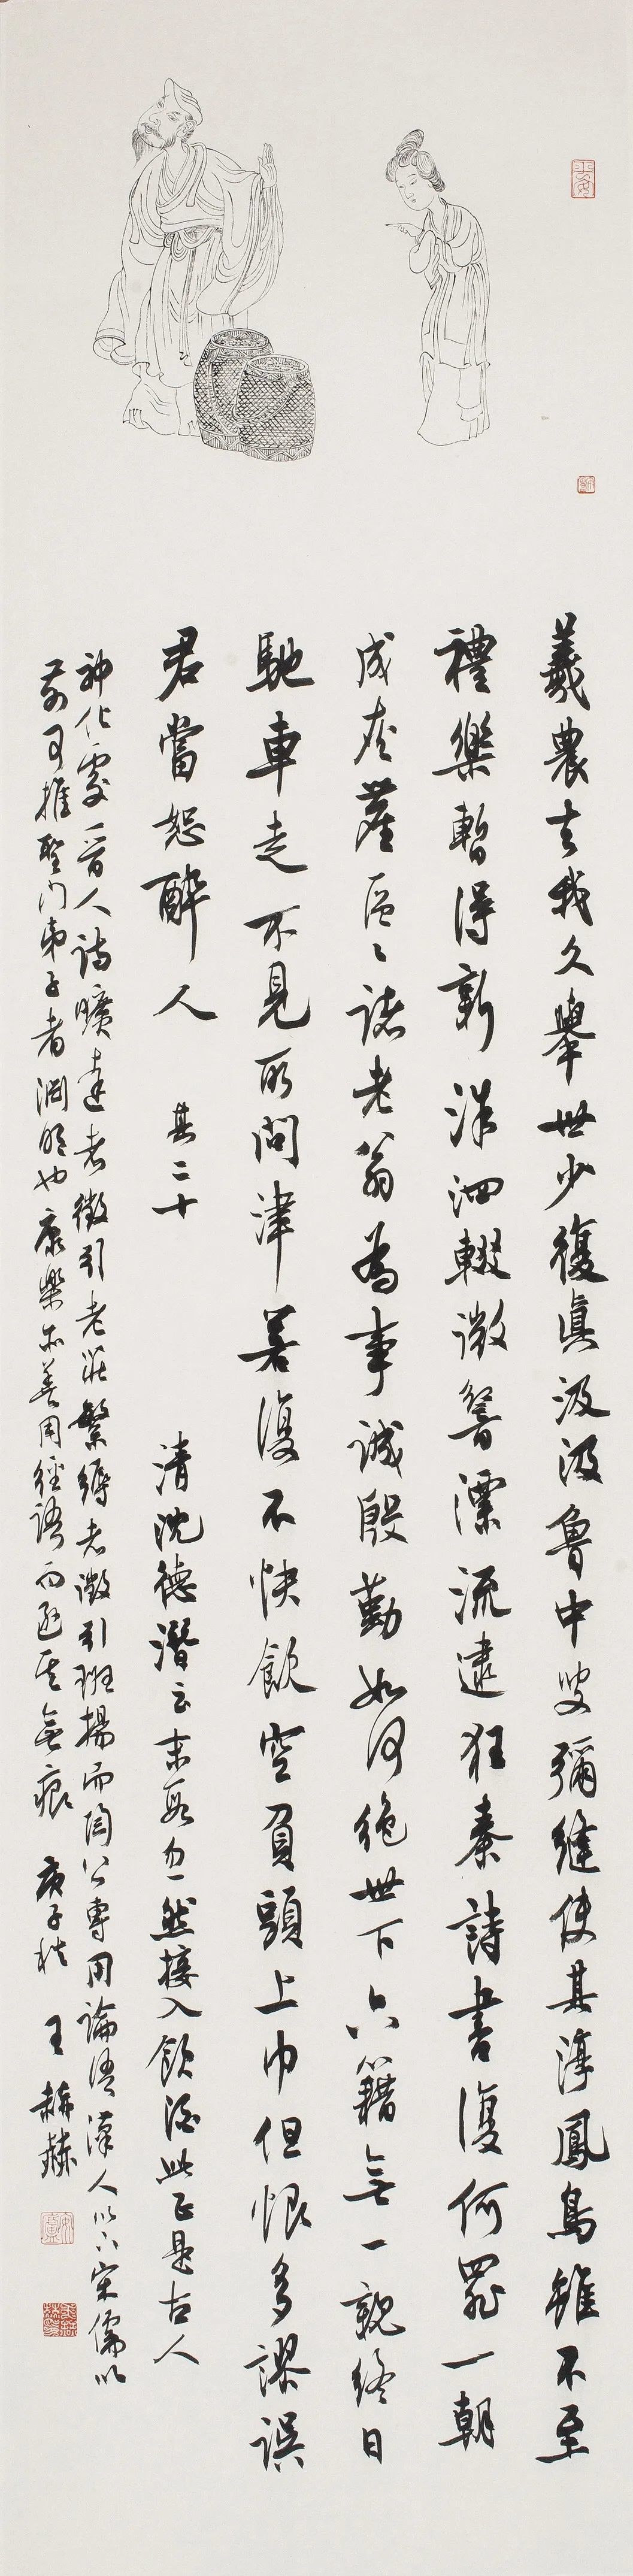 羲農去我久舉世少復真汲汲魯中叟彌縫使其淳鳳鳥雖不至
禮樂暫得新洙泗輟微響漂流逮狂秦詩書復何罪一朝
成灰塵區〻諸老翁為事誠殷勤如何絕世下六籍無一親終日
馳車走不見所問津若復不快飲空負頭上巾但恨多謬誤
君當恕醉人 其二十 清沈德潛云末段忽然接入飲酒此正是古人
神化處晉人詩曠達者徵引老莊繁縟者徵引班揚而陶公專用論語漢人以下宋儒以
前可推聖門弟子者淵明也康樂亦善用經語而遜其無痕 庚子秋 王赫赫